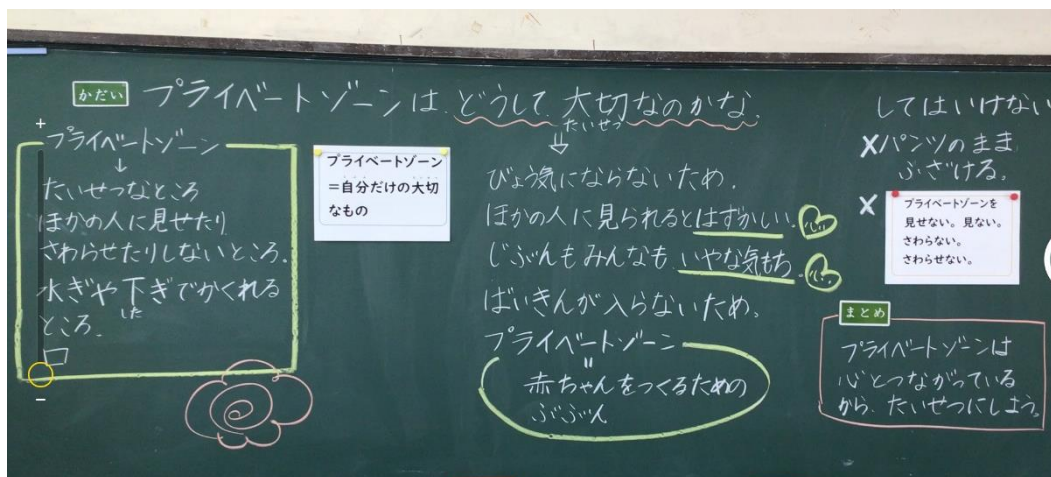 かだい プライベートゾーンは どうして 大切なのかな
たいせつ
プライベートゾーン
↓
たいせつなところ
ほかの人に見せたり
さわらせたりしないところ.
水ぎや下ぎでかくれる
した
ところ.
プライベートゾーン
=自分だけの大切
なもの
⇓
びょう気にならないため.
ほかの人に見られるとはずかしい. 心
じぶんもみんなも いやな気もち. 心
ばいきんが入らないため.
プライベートゾーン
=
赤ちゃんをつくるための
ぶぶん
してはいけない
×パンツのまま
ふざける。
×
プライベートゾーンを
見せない。見ない。
さわらない。
さわらせない。
まとめ
プライベートゾーンは
心とつながっている
から、たいせつにしよう。